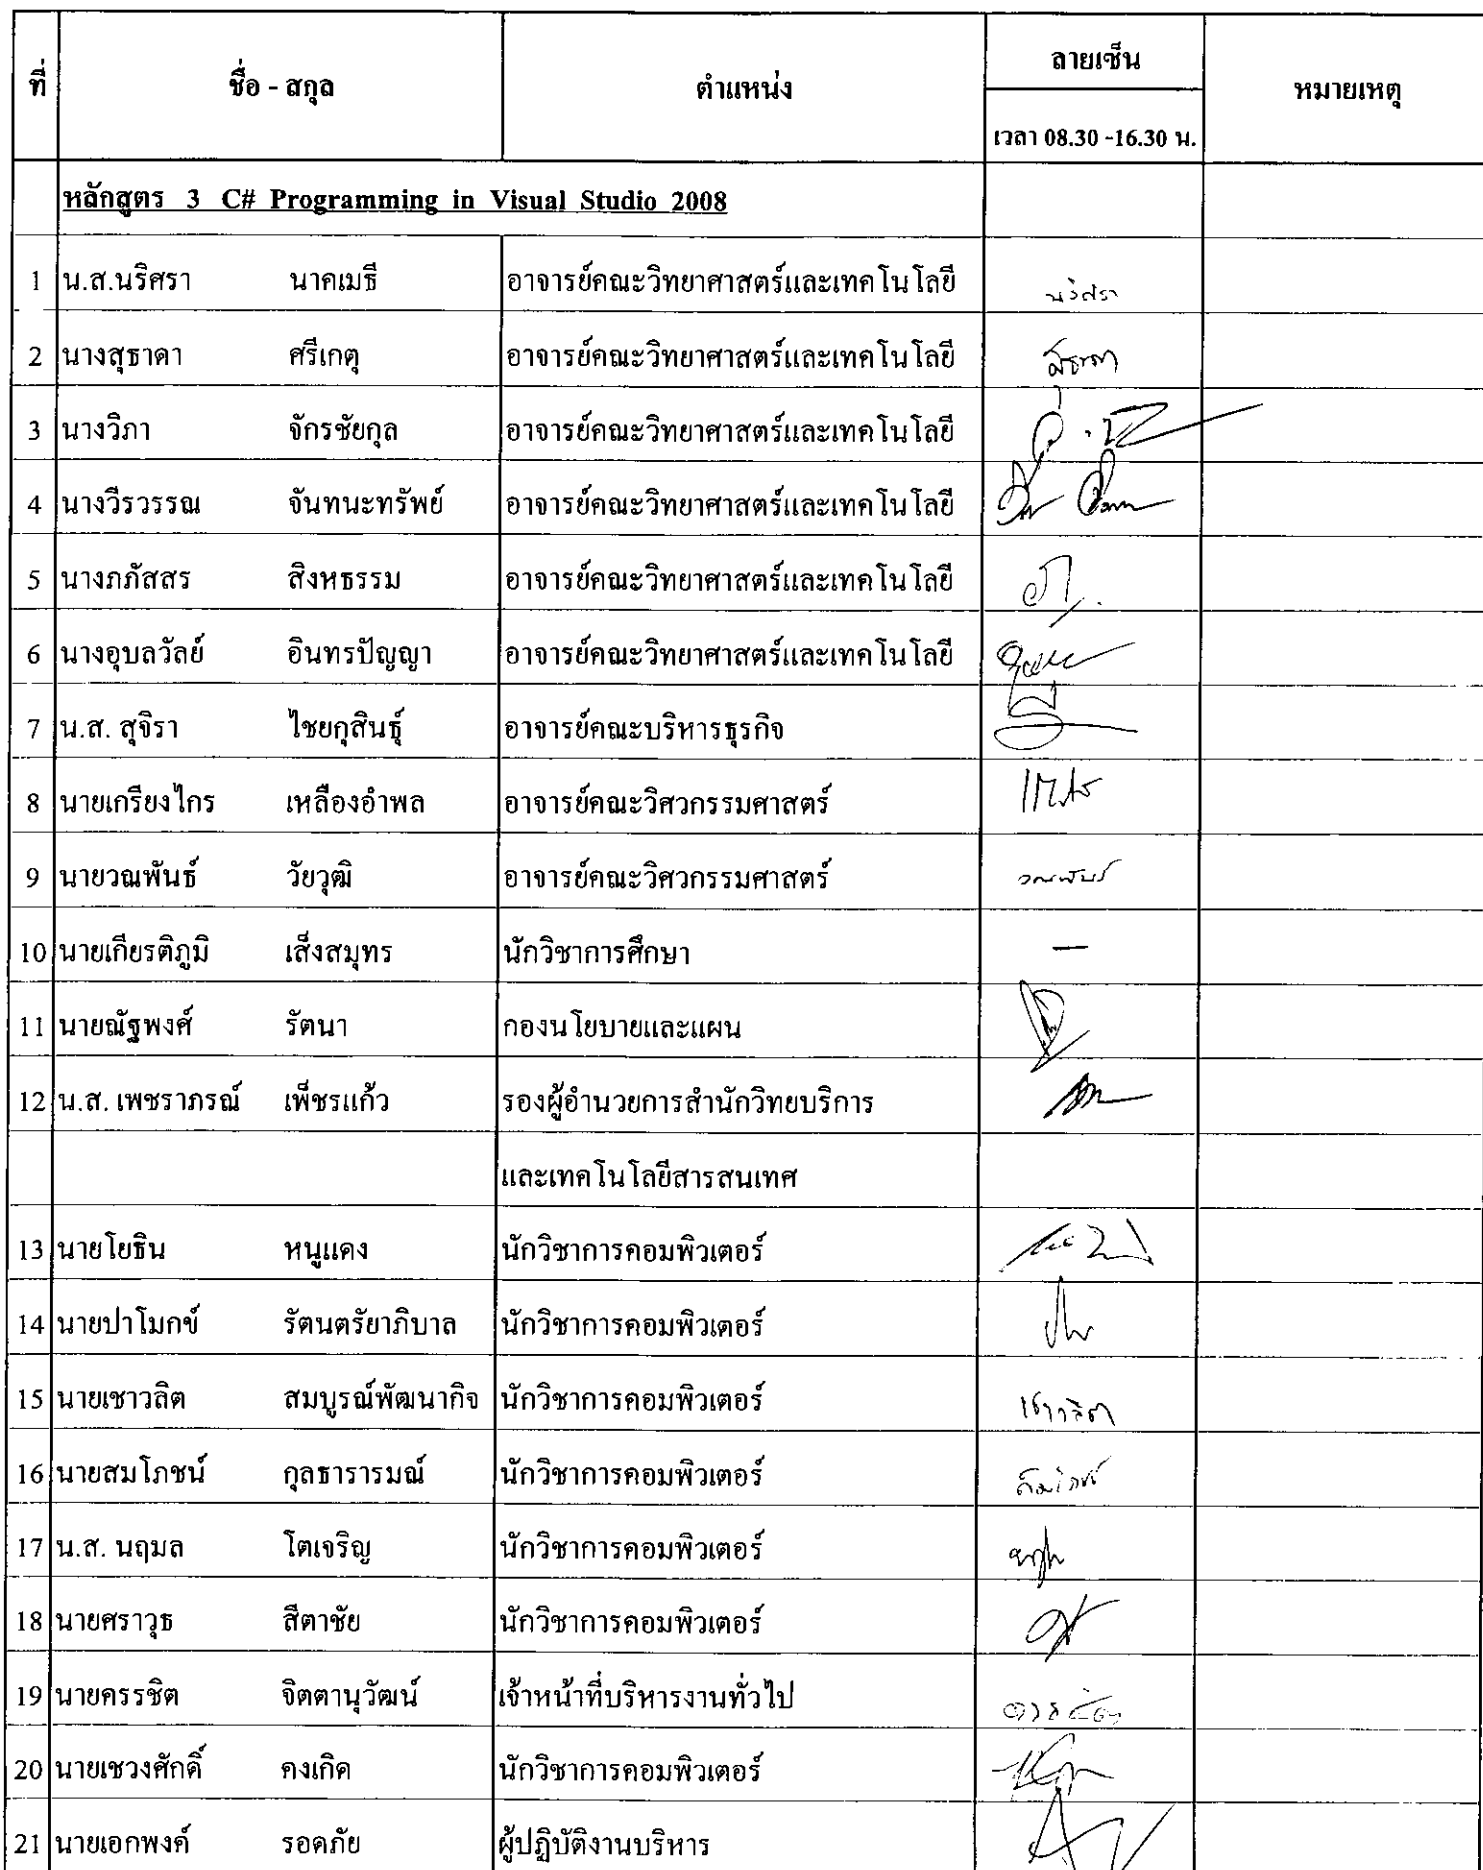 ที่ ชื่อ - สกุล ตำแหน่ง ลายเซ็น หมายเหตุ
เวลา 08.30 -16.30 น.
หลักสูตร 3 C# Programming in Visual Studio 2008
1 น.ส.นริศรา นาคเมธี อาจารย์คณะวิทยาศาสตร์และเทคโนโลยี นริศรา
2 นางสุธาดา ศรีเกตุ อาจารย์คณะวิทยาศาสตร์และเทคโนโลยี สุธาดา
3 นางวิภา จักรชัยกุล อาจารย์คณะวิทยาศาสตร์และเทคโนโลยี
4 นางวีรวรรณ จันทนะทรัพย์ อาจารย์คณะวิทยาศาสตร์และเทคโนโลยี
5 นางภภัสสร สิงหธรรม อาจารย์คณะวิทยาศาสตร์และเทคโนโลยี
6 นางอุบลวัลย์ อินทรปัญญา อาจารย์คณะวิทยาศาสตร์และเทคโนโลยี
7 น.ส. สุจิรา ไชยกุสินธุ์ อาจารย์คณะบริหารธุรกิจ
8 นายเกรียงไกร เหลืองอำพล อาจารย์คณะวิศวกรรมศาสตร์
9 นายวณพันธ์ วัยวุฒิ อาจารย์คณะวิศวกรรมศาสตร์ วณพันธ์
10 นายเกียรติภูมิ เส็งสมุทร นักวิชาการศึกษา —
11 นายณัฐพงศ์ รัตนา กองนโยบายและแผน
12 น.ส. เพชราภรณ์ เพ็ชรแก้ว รองผู้อำนวยการสำนักวิทยบริการ
และเทคโนโลยีสารสนเทศ
13 นายโยธิน หนูแดง นักวิชาการคอมพิวเตอร์
14 นายปาโมกข์ รัตนตรัยาภิบาล นักวิชาการคอมพิวเตอร์
15 นายเชาวลิต สมบูรณ์พัฒนากิจ นักวิชาการคอมพิวเตอร์ เชาวลิต
16 นายสมโภชน์ กุลธารารมณ์ นักวิชาการคอมพิวเตอร์ สมโภชน์
17 น.ส. นฤมล โตเจริญ นักวิชาการคอมพิวเตอร์
18 นายศราวุธ สีตาชัย นักวิชาการคอมพิวเตอร์
19 นายครรชิต จิตตานุวัฒน์ เจ้าหน้าที่บริหารงานทั่วไป ครรชิต
20 นายเชวงศักดิ์ คงเกิด นักวิชาการคอมพิวเตอร์
21 นายเอกพงค์ รอดภัย ผู้ปฏิบัติงานบริหาร